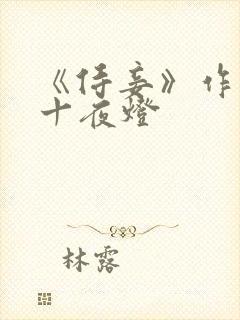 《侍妾》作
十夜燈
林露